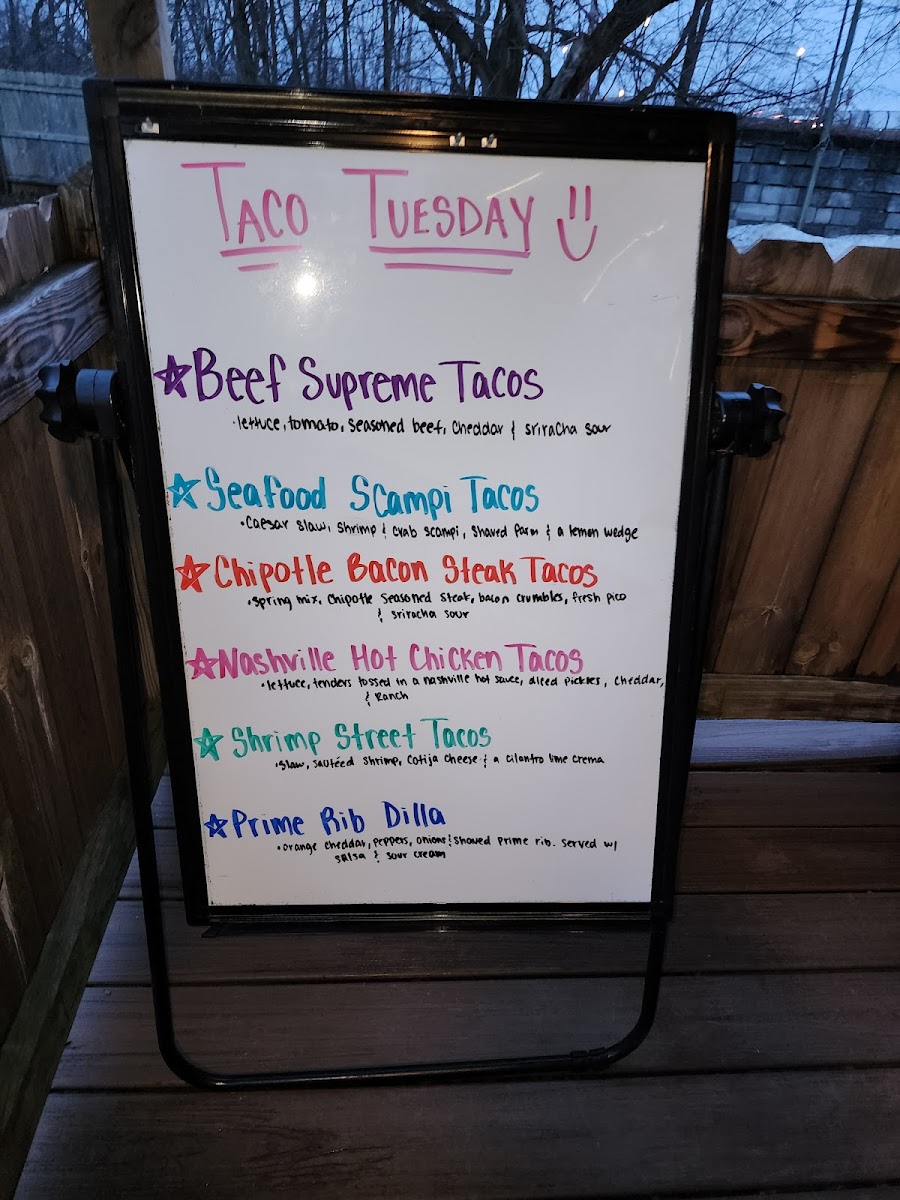 TACO TUESDAY
Beef Supreme Tacos
•lettuce, tomato, seasoned beef, cheddar & sriracha sour
Seafood Scampi Tacos
•Caesar slaw, shrimp & crab scampi, shaved parm & a lemon wedge
Chipotle Bacon Steak Tacos
•spring mix, chipotle seasoned steak, bacon crumbles, fresh pico
& sriracha sour
Nashville Hot Chicken Tacos
•lettuce, tenders tossed in a nashville hot sauce, diced pickles, cheddar,
& Ranch
Shrimp Street Tacos
•slaw, sautéed shrimp, cotija cheese & a cilantro lime crema
Prime Rib Dilla
•orange cheddar, peppers, onions & shaved prime rib. served w/
salsa & sour cream